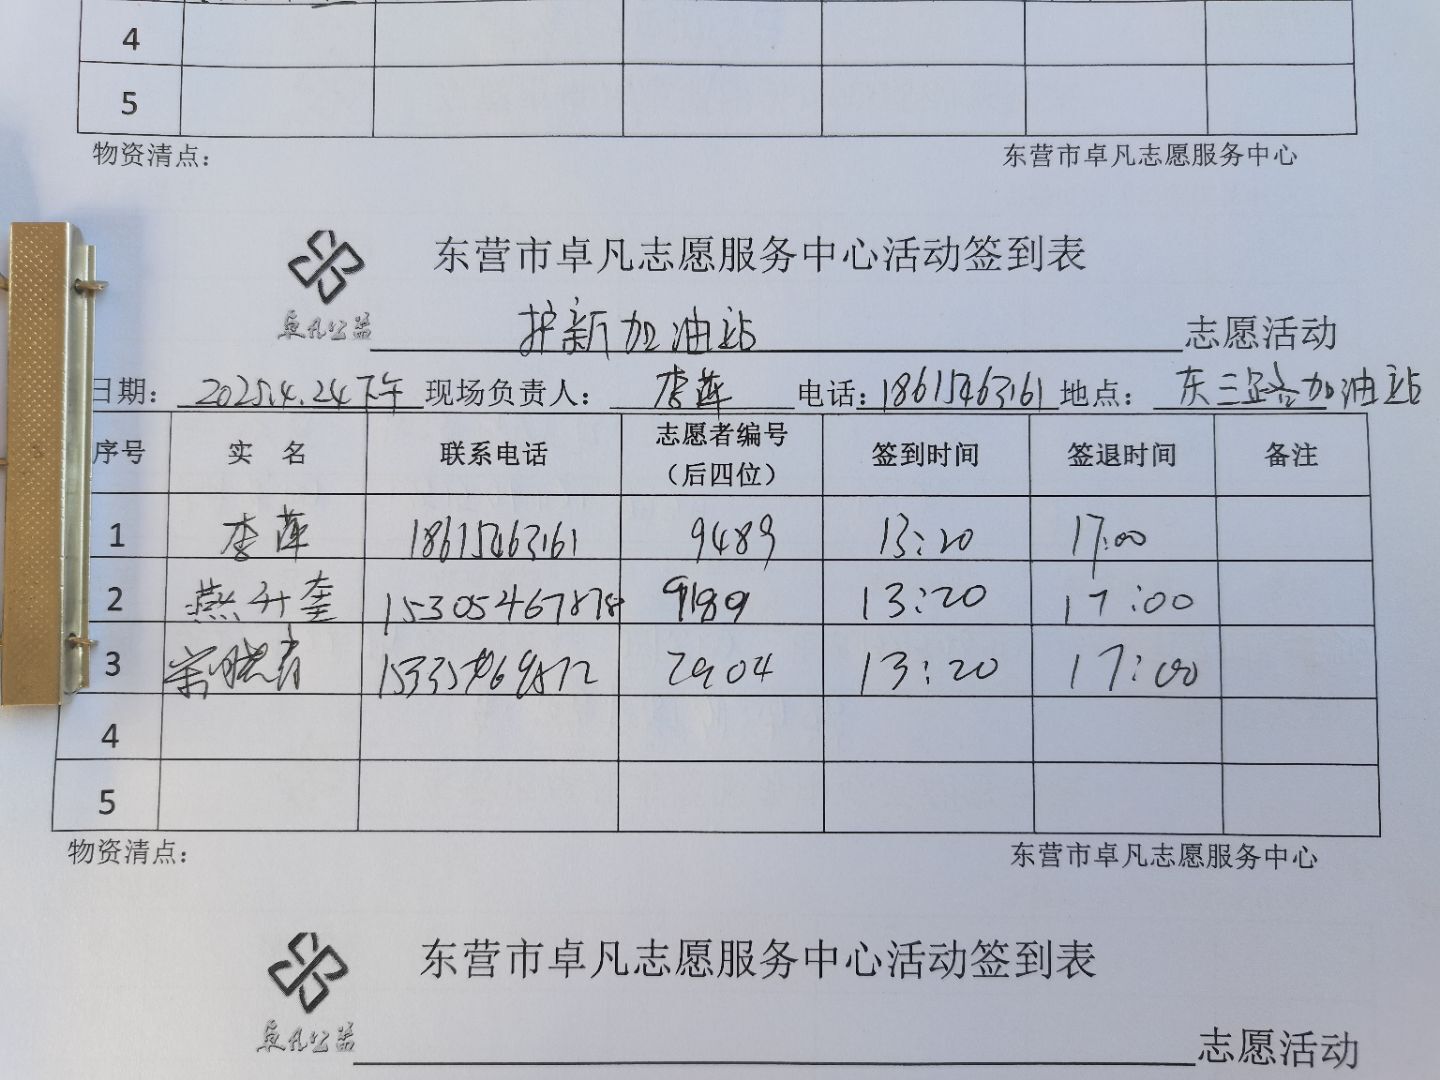 4
5
物资清点： 东营市卓凡志愿服务中心
东营市卓凡志愿服务中心活动签到表
卓凡公益 护新加油站 志愿活动
日期： 2025.4.24下午 现场负责人： 李萍 电话：18615463161 地点： 东三路加油站
序号 实 名 联系电话 志愿者编号（后四位） 签到时间 签退时间 备注
1 李萍 18615463161 9489 13:20 17:00
2 燕升奎 15305467878 9189 13:20 17:00
3 2904 13:20 17:00
4
5
物资清点： 东营市卓凡志愿服务中心
东营市卓凡志愿服务中心活动签到表
卓凡公益 志愿活动